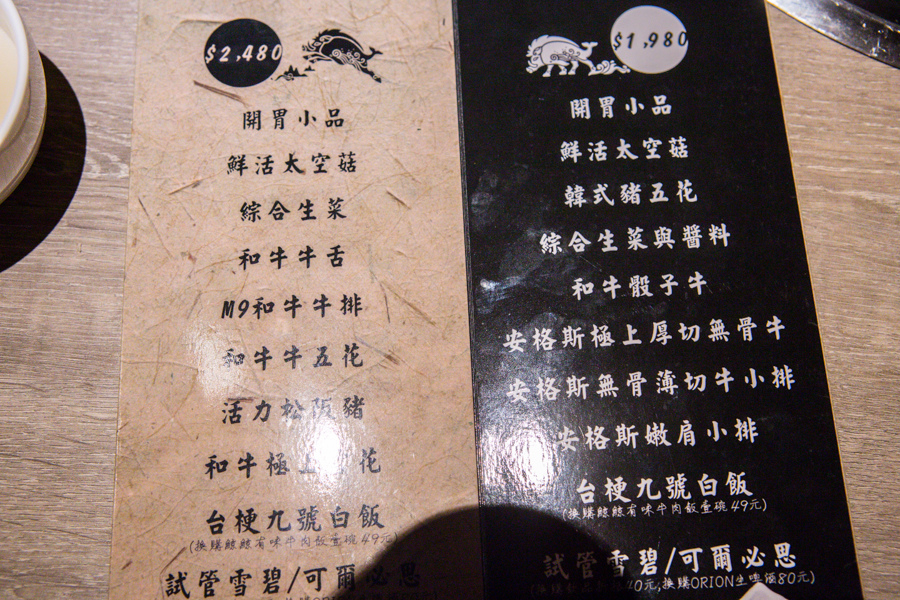 $2,480
開胃小品
鮮活太空菇
綜合生菜
和牛牛舌
M9和牛牛排
和牛牛五花
活力松阪豬
和牛極上 花
台梗九號白飯
(換購鯨鯨有味牛肉飯壹碗49元)
試管雪碧/可爾必思
換購ORION
$1,980
開胃小品
鮮活太空菇
韓式豬五花
綜合生菜與醬料
和牛骰子牛
安格斯極上厚切無骨牛
安格斯無骨薄切牛小排
安格斯嫩肩小排
台梗九號白飯
(換購鯨鯨有味牛肉飯壹碗49元)
試管雪碧/可爾必思
40元,換購ORION生啤酒80元)